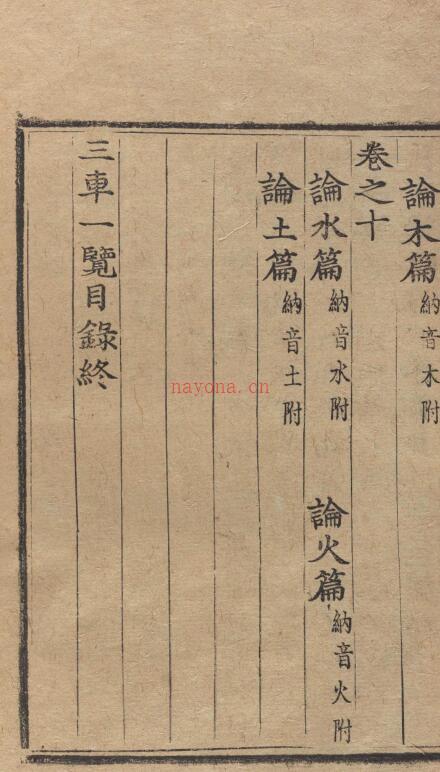 論木篇 納音木附
卷之十
論水篇 納音水附 論火篇 納音火附
論土篇 納音土附
三車一覽目錄終
nayona.cn